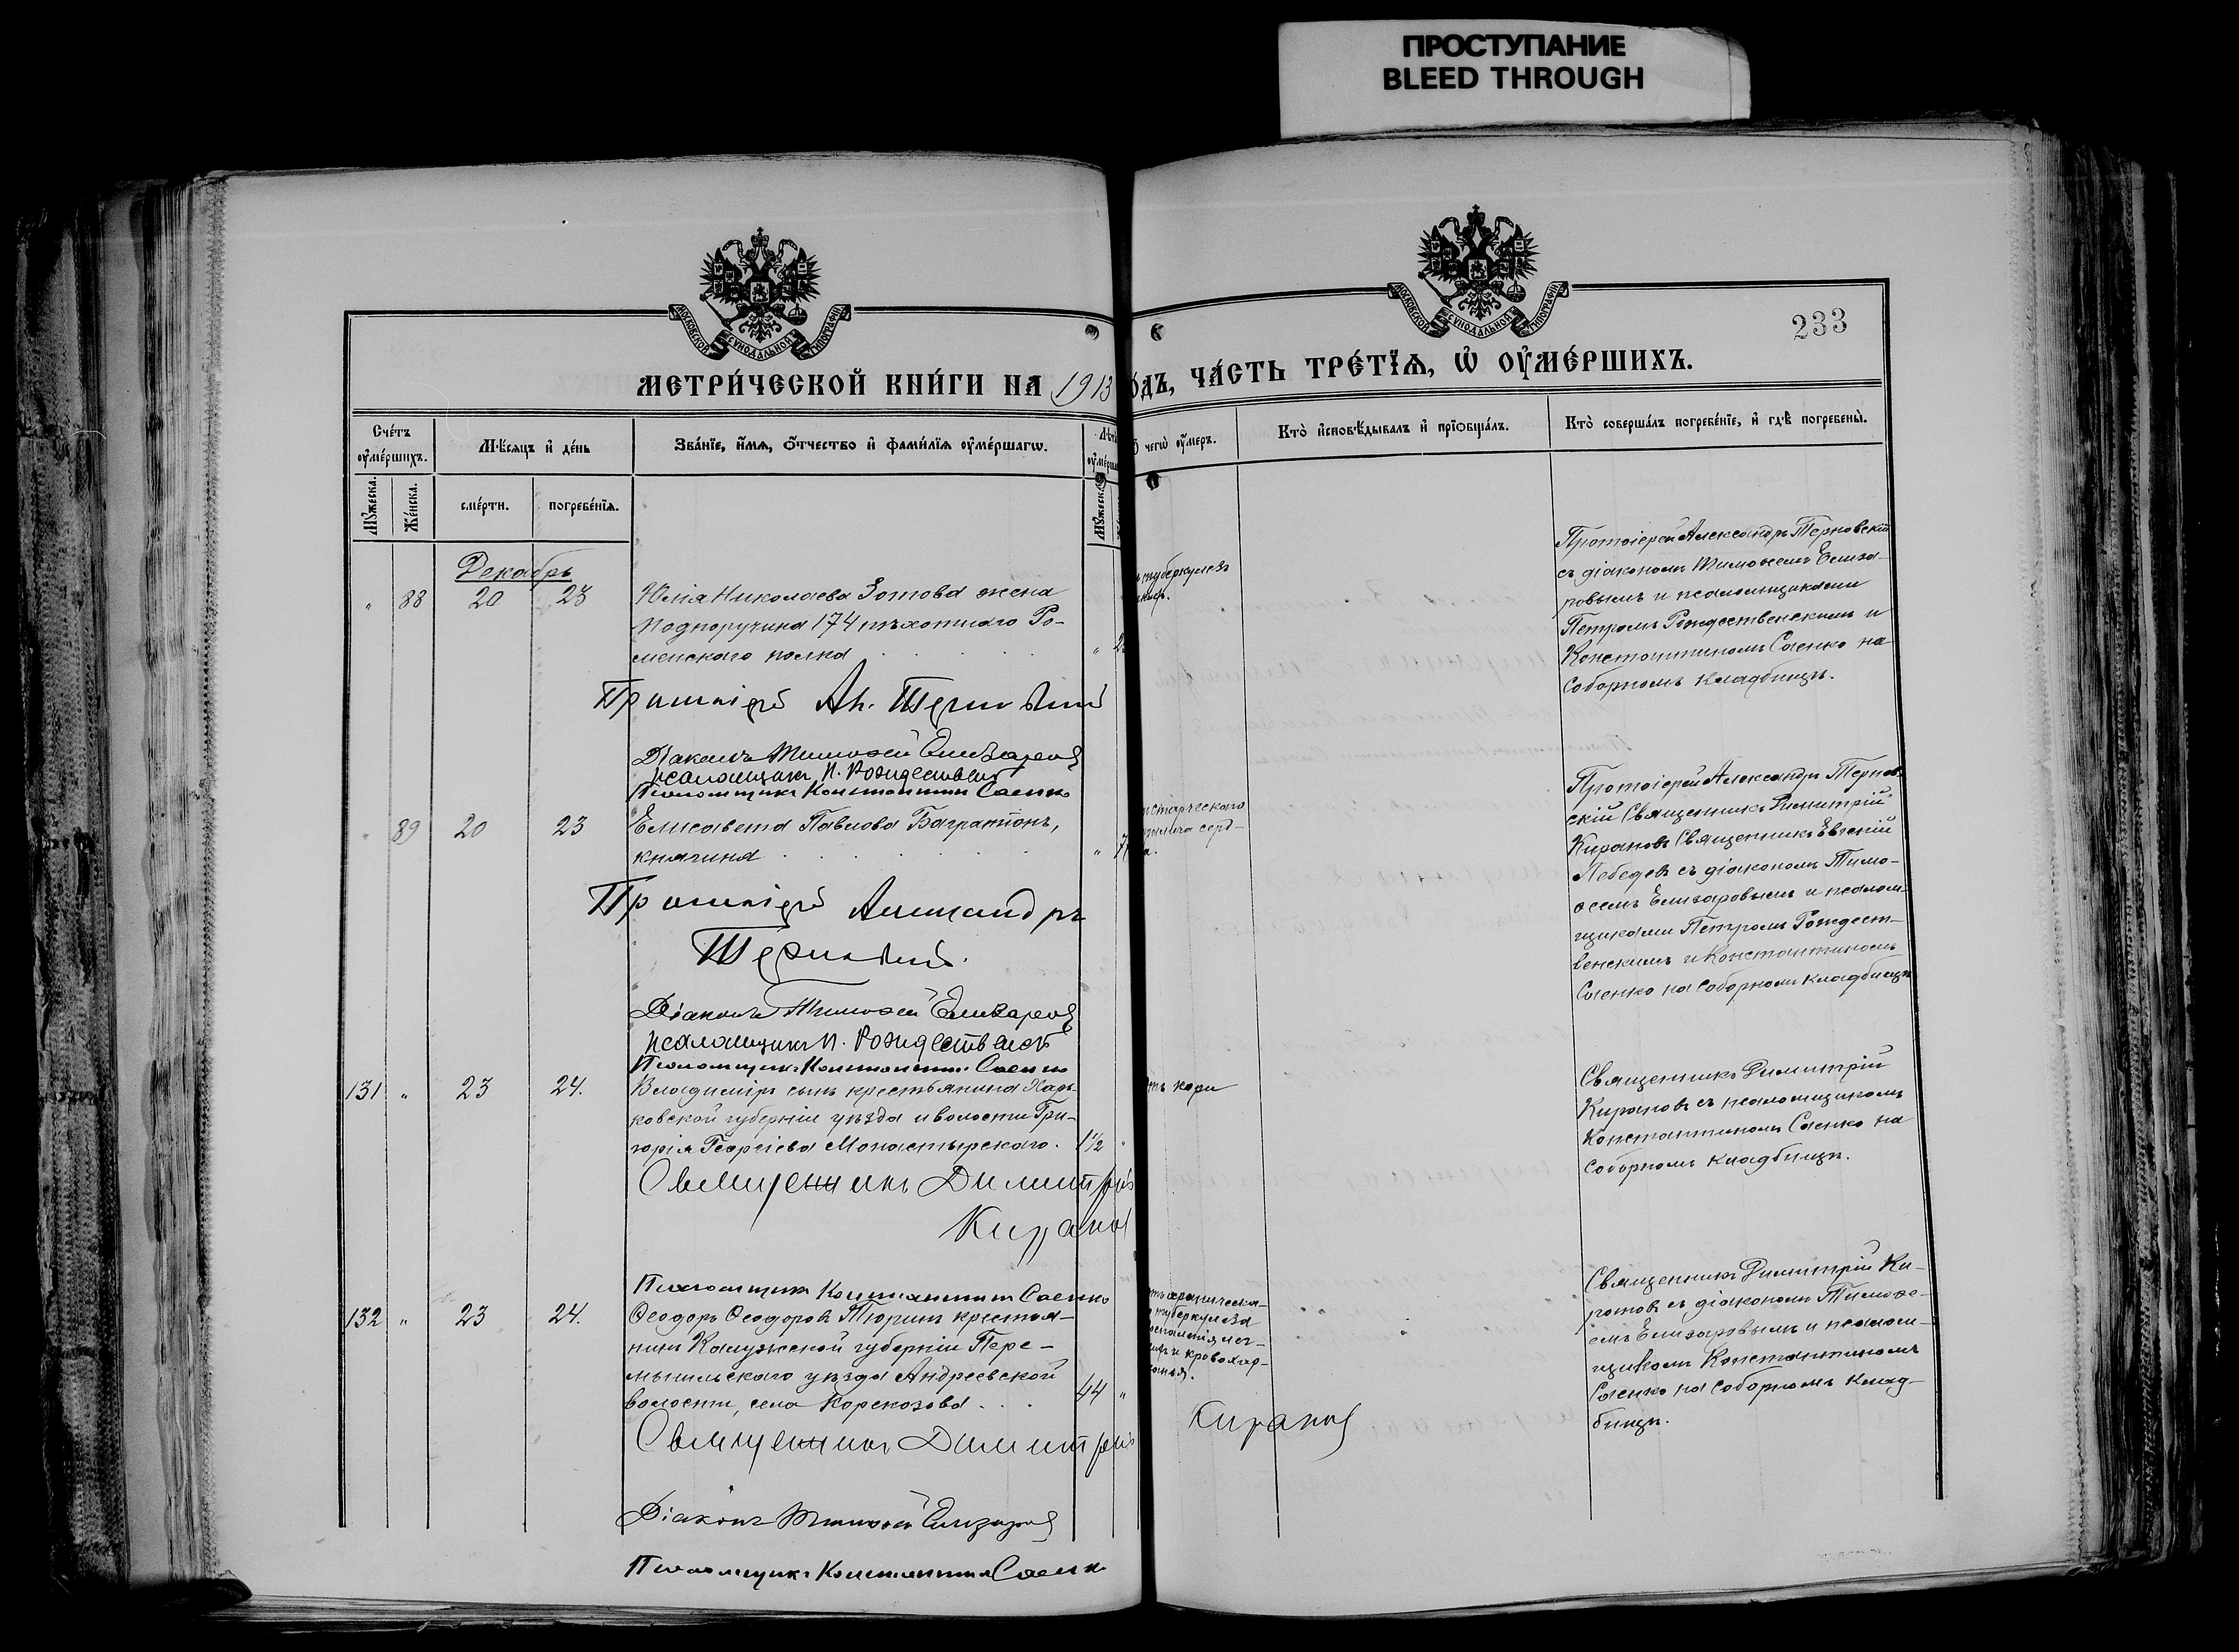 ПРОСТУПАНИЕ
BLEED THROUGH
МОСКОВСКОЙ СѴНОДАЛЬНОЙ ТИПОГРАФІИ
МОСКОВСКОЙ СѴНОДАЛЬНОЙ ТИПОГРАФІИ
233
МЕТРИ́ЧЕСКОЙ КНИ́ГИ НА 1913
О́ДЪ, ЧА́СТЬ ТРЕ́ТЇѦ, Ѡ҆ ОУ҆МЕ́РШИХЪ.
Сче́тъ оу҆ме́ршихъ.
Мѣ́сѧцъ и҆ де́нь
Зва́нїе, и҆́мѧ, ѻ҆́тчество и҆ фами́лїѧ оу҆ме́ршагѡ.
чегѡ̀ оу҆́меръ.
Кто̀ и҆сповѣ́дывалъ и҆ прїѻбща́лъ.
Кто̀ соверша́лъ погребе́нїе, и҆ гдѣ̀ погребены̀.
Мꙋ́жеска.
Же́нска.
сме́рти.
погребе́нїѧ.
Декабрь
" 88 20 23
Юлія Николаева Зотова жена
Подпоручика 174 пѣхотнаго Ро-
менскаго полка
Протоіерей Ал. Терновскій
Діаконъ Тимоѳей Елизаровъ
псаломщикъ П. Рождественскій
Псаломщикъ Константинъ Саенко
туберкулеза
Протоіерей Александръ Терновскій
съ діакономъ Тимоѳеемъ Елиза-
ровымъ и псаломщиками
Петромъ Рождественскимъ и
Константиномъ Саенко на
Соборномъ кладбищѣ.
" 89 20 23
Елисавета Павлова Багратіонъ,
княгиня
Протоіерей Александръ
Терновскій.
Діаконъ Тимоѳей Елизаровъ
псаломщикъ П. Рождественскій
Псаломщикъ Константинъ Саенко
старческаго
серд-
а.
Протоіерей Александръ Тернов-
скій Священникъ Димитрій
Кирановъ Священникъ Евгеній
Лебедевъ съ діакономъ Тимо-
ѳеемъ Елизаровымъ и псалом-
щиками Петромъ Рождест-
венскимъ и Константиномъ
Саенко на Соборномъ кладбищѣ
131 " 23 24.
Владиміръ сынъ крестьянина Харь-
ковской губерніи уѣзда и волости Гри-
горія Георгіева Монастырскаго. 1½ "
Священникъ Димитрій
Кирановъ
Псаломщикъ Константинъ Саенко
кори
Священникъ Димитрій
Кирановъ съ псаломщикомъ
Константиномъ Саенко на
Соборномъ кладбищѣ.
132 " 23 24.
Ѳеодоръ Ѳеодоровъ Тюринъ крестья-
нинъ Калужской губерніи Пере-
мышльскаго уѣзда Андреевской
волости, села Корекозова 44 "
Священникъ Димитрій
Кирановъ
Діаконъ Тимоѳей Елизаровъ
Псаломщикъ Константинъ Саенко
хроническа-
туберкулеза
лег-
и кровохар-
канья.
Священникъ Димитрій Ки-
рановъ съ діакономъ Тимоѳе-
емъ Елизаровымъ и псалом-
щикомъ Константиномъ
Саенко на Соборномъ клад-
бищѣ.